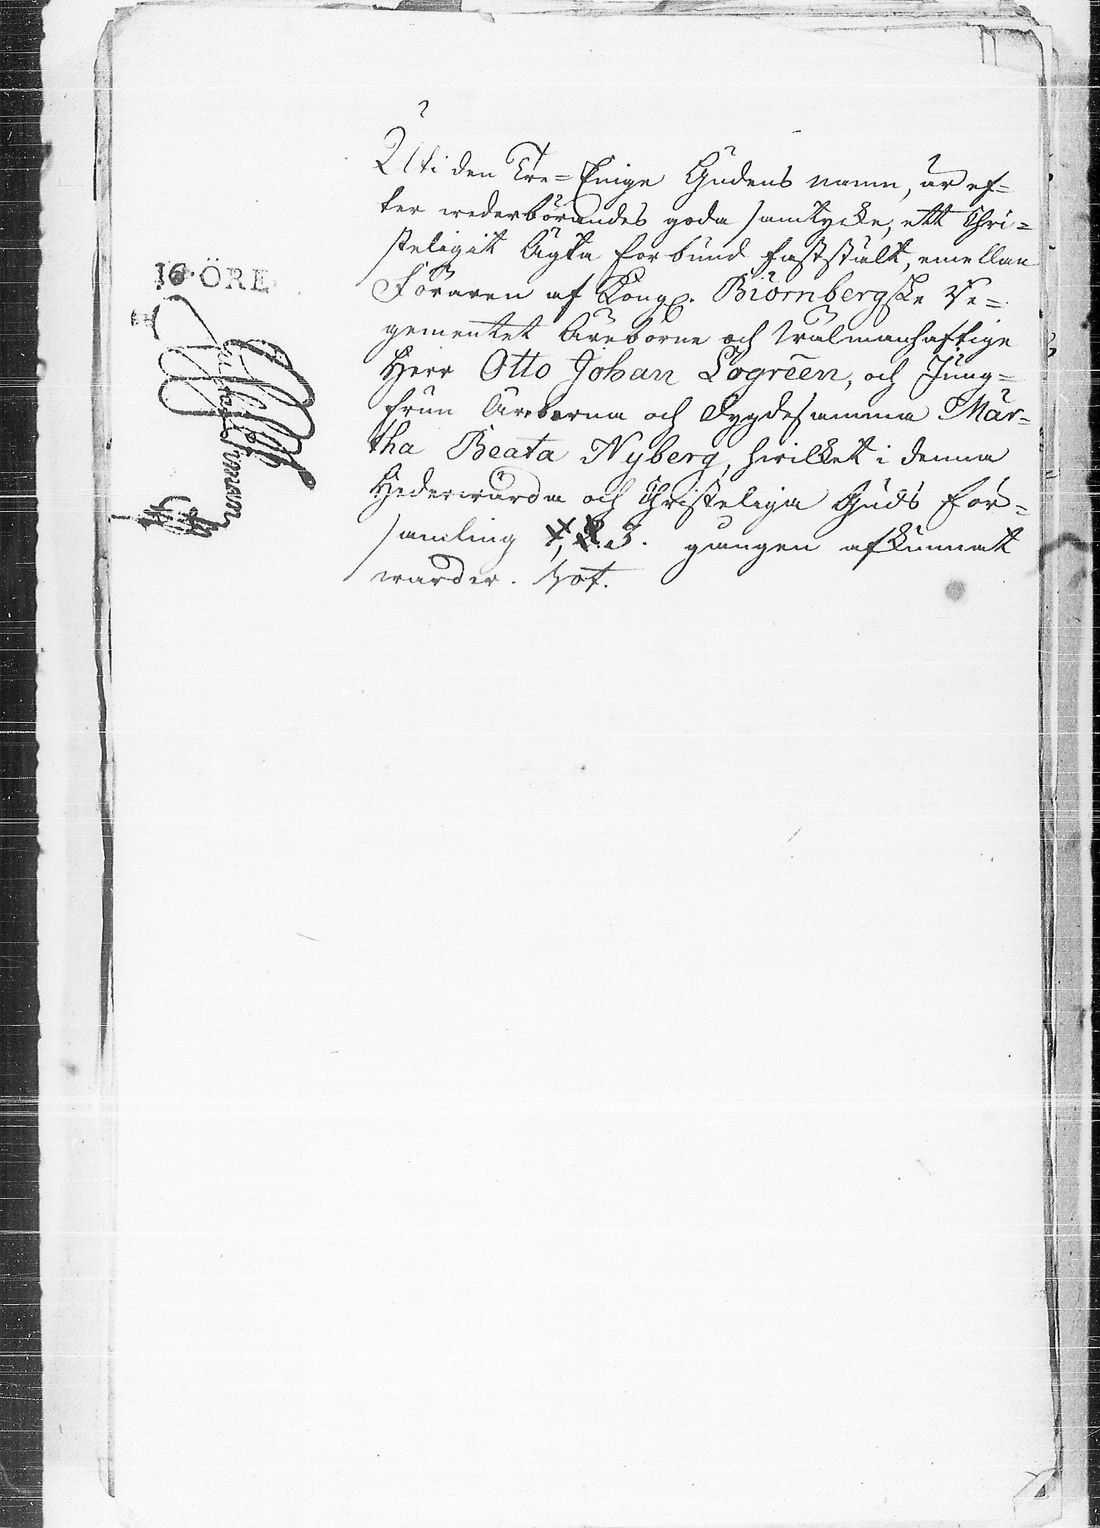 16·ÖRE
Uti den Tre=Enige Gudens namn, är ef=
ter wederbörandes goda samtycke, ett Chri=
steligit Ägta förbund fastställt, emellan
Föraren af Kongl. Biörnbergske Re=
gementet Äreborne och Wälmanhaftige
Herr Otto Johan Logréen, och Jung=
frun Äreborna och dygdesamma Mär=
tha Beata Nyberg, hwilket i denna
Hederwärda och Christeliga Guds för=
samling 3. gången afkunnat
warder.